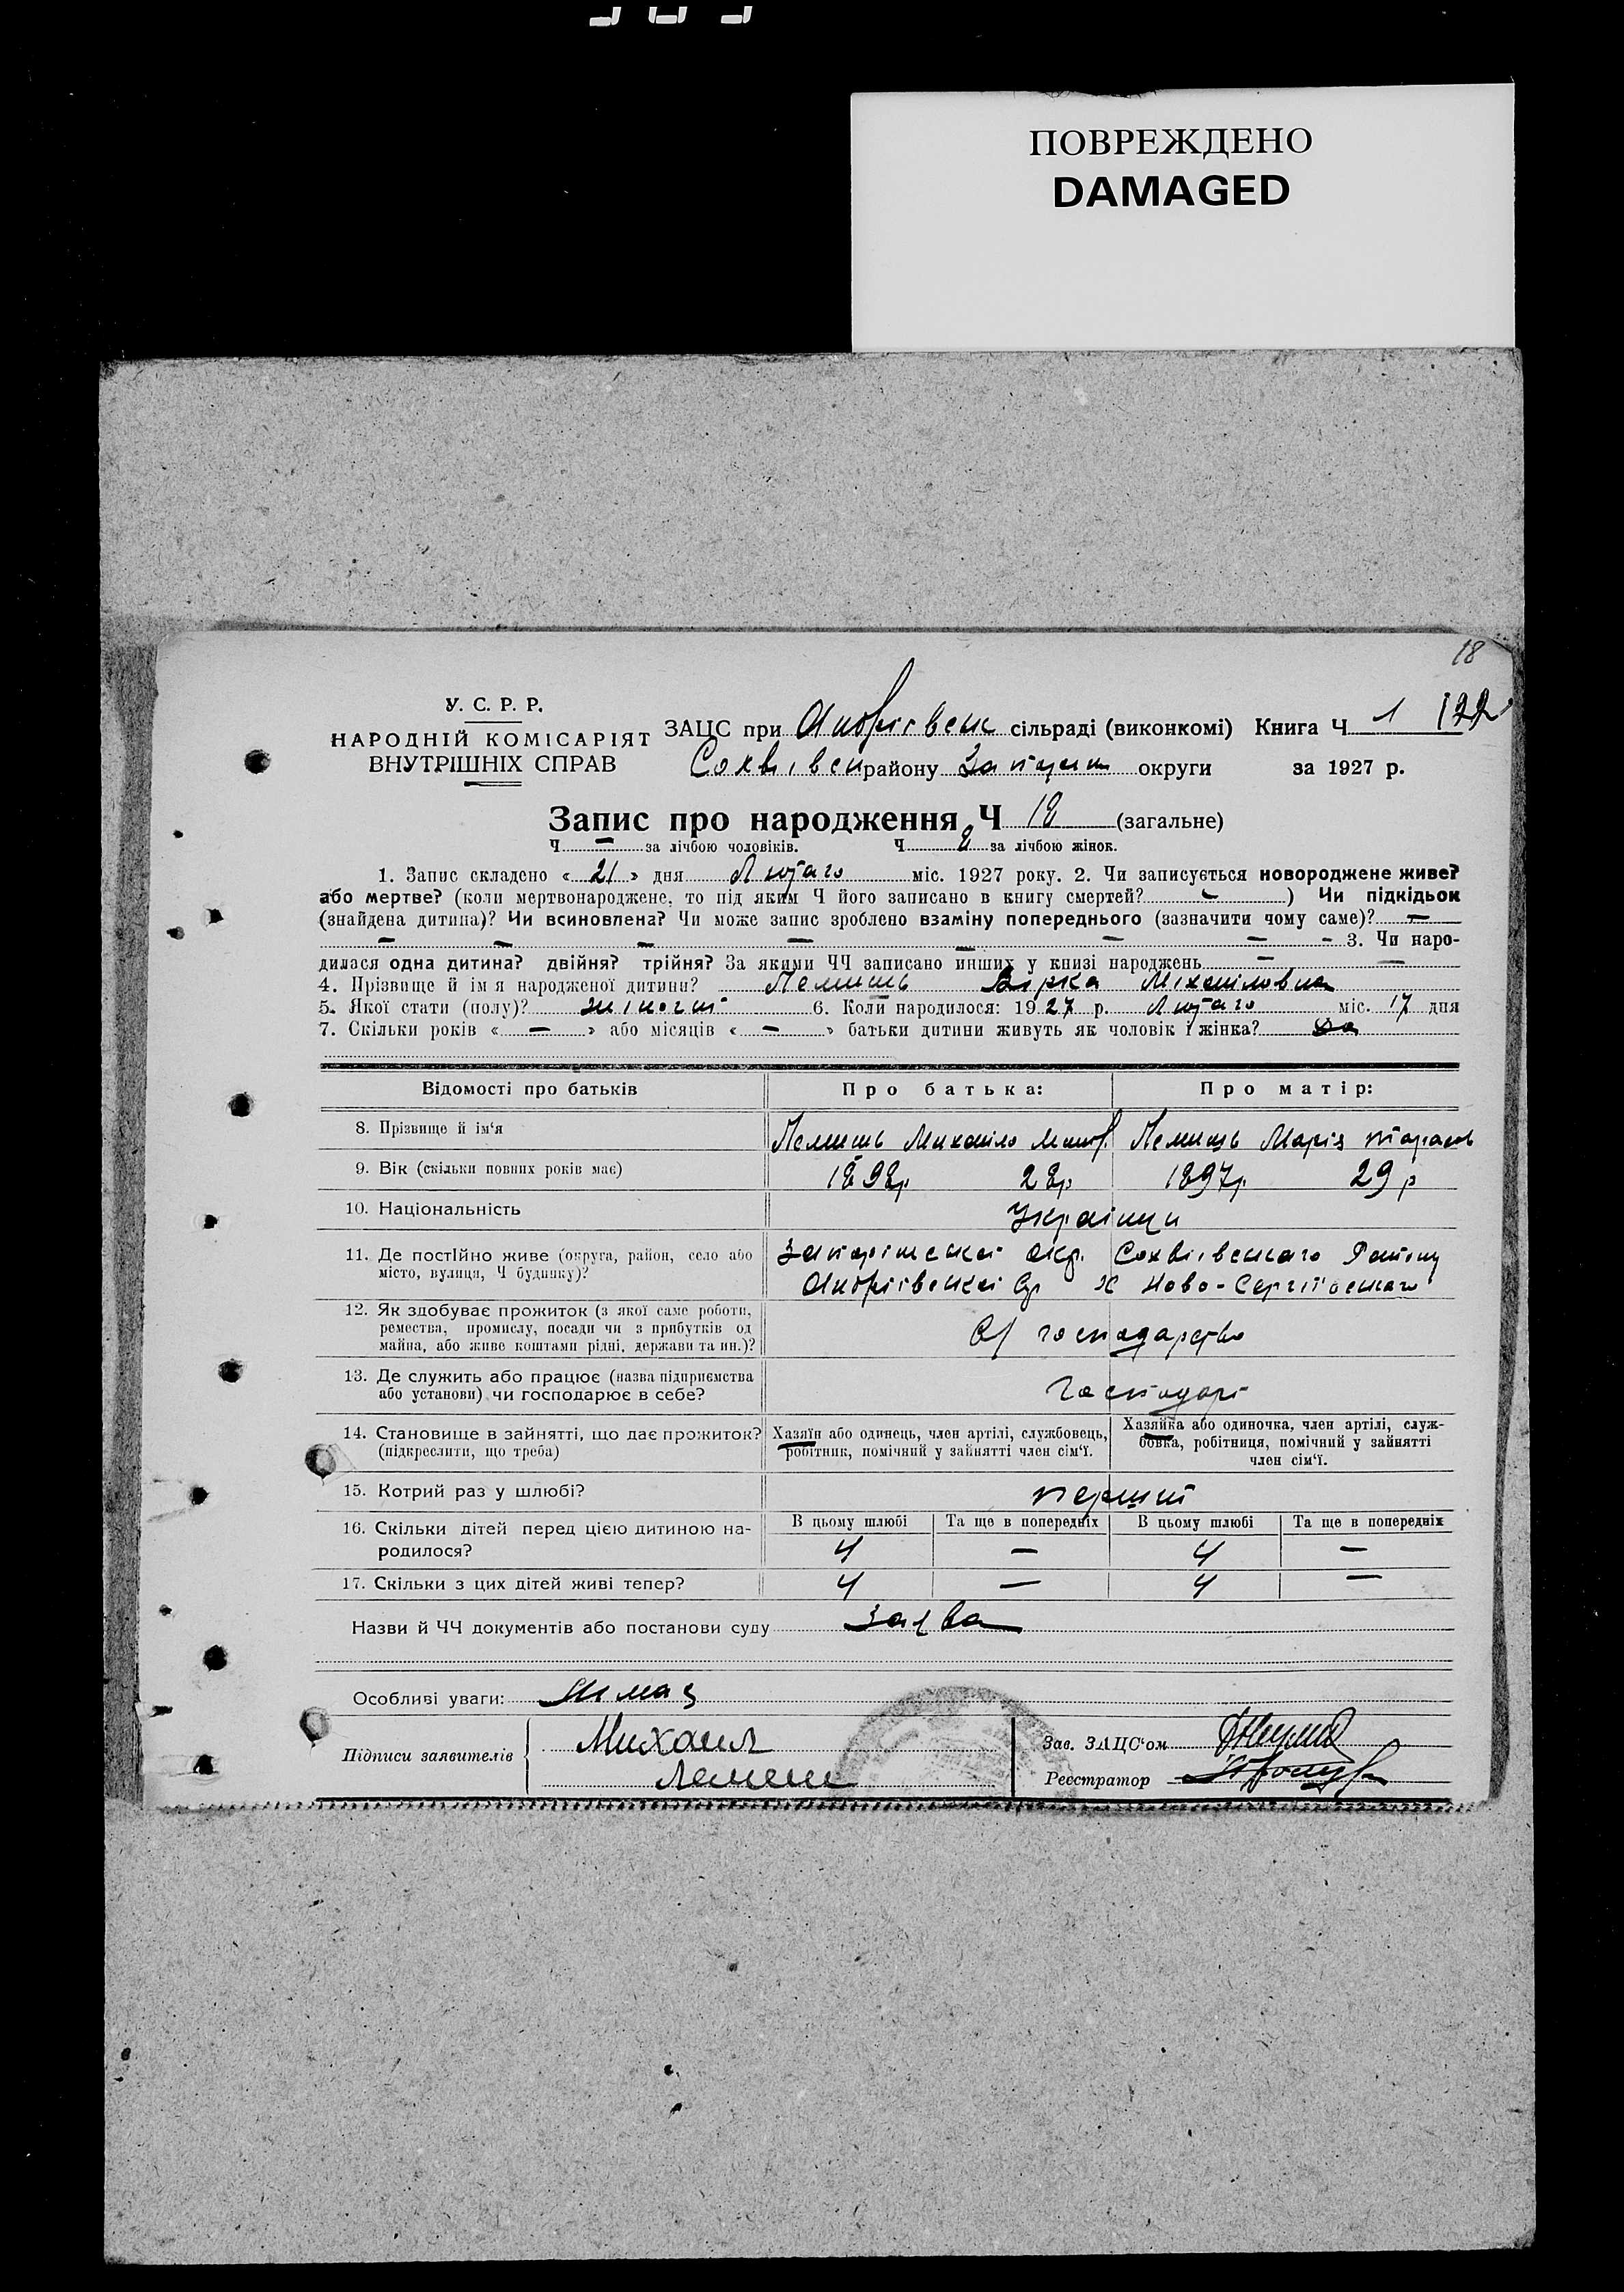 ПОВРЕЖДЕНО
DAMAGED
18
У. С. Р. Р.
НАРОДНІЙ КОМІСАРІЯТ
ВНУТРІШНІХ СПРАВ
ЗАЦС при Андріївськ сільраді (виконкомі) Книга Ч 1 122
району округи за 1927 р.
Запис про народження Ч 18 (загальне)
Ч — за лічбою чоловіків. Ч 8 за лічбою жінок.
1. Запис складено « 21 » дня Лютого міс. 1927 року. 2. Чи записується новороджене живе?
або мертве? (коли мертвонароджене, то під яким Ч його записано в книгу смертей? — ) Чи підкідьок
(знайдена дитина)? Чи всиновлена? Чи може запис зроблено взаміну попереднього (зазначити чому саме)? —
— — — — — — — - 3. Чи наро-
дилася одна дитина? двійня? трійня? За якими ЧЧ записано инших у книзі народжень — —
4. Прізвище й ім'я народженої дитини? Лемишь Вірка Міхайловна
5. Якої стати (полу)? жіночої 6. Коли народилося: 1927 р. Лютаго міс. 17 дня
7. Скільки років « — » або місяців « — » батьки дитини живуть як чоловік і жінка? да
Відомості про батьків Про батька: Про матір:
8. Прізвище й ім'я Лемишь Михайло Лемишь Марія Тарасов
9. Вік (скільки повних років має) 1898р 28р 1897р. 29 р
10. Національність Українци
11. Де постійно живе (округа, район, село або місто, вулиця, Ч будинку)? окр. Району
Х Ново-Сергіївського
12. Як здобуває прожиток (з якої саме роботи,
ремества, промислу, посади чи з прибутків од
майна, або живе коштами рідні, держави та ин.)? С/ господарство
13. Де служить або працює (назва підприємства
або установи) чи господарює в себе? Господарі
14. Становище в зайнятті, що дає прожиток?
(підкреслити, що треба)
Хазяїн або одинець, член артілі, службовець,
робітник, помічний у зайнятті член сім'ї.
Хазяйка або одиночка, член артілі, служ-
бовка, робітниця, помічний у зайнятті
член сім'ї.
15. Котрий раз у шлюбі? перший
16. Скільки дітей перед цією дитиною на-
родилося?
В цьому шлюбі Та ще в попередніх В цьому шлюбі Та ще в попередніх
4 — 4 —
17. Скільки з цих дітей живі тепер? 4 — 4 —
Назви й ЧЧ документів або постанови суду Заява
Особливі уваги: Німає
Підписи заявителів Михаил
Лемеш
Зав. ЗАЦС'ом
Реєстратор